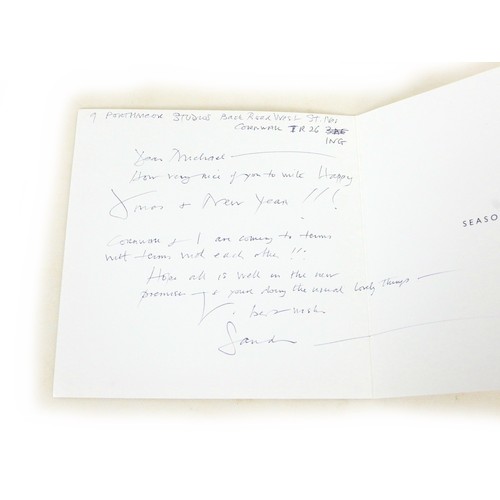 9 PORTHMEOR STUDIOS Back Road West St. Ives
CORNWALL TR26
1NG
Dear Michael
How very nice of you to write Happy
Xmas + New Year !!!
Cornwall & I are coming to terms
with terms with each other !!
Hope all is well in the new
premise & your doing the usual lovely things
best wishes
Sand
SEASO